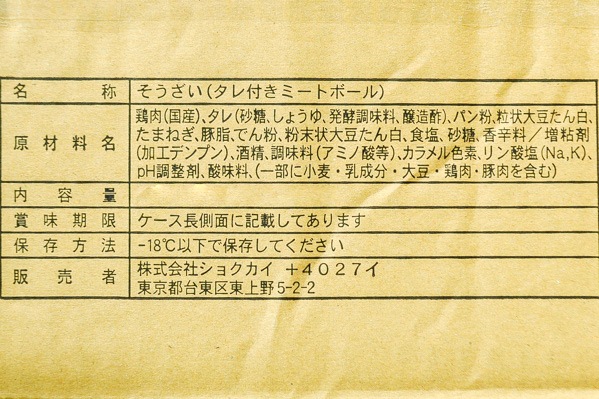 名称 そうざい(タレ付きミートボール)
原材料名 鶏肉(国産)、タレ(砂糖、しょうゆ、発酵調味料、醸造酢)、パン粉、粒状大豆たん白、
たまねぎ、豚脂、でん粉、粉末状大豆たん白、食塩、砂糖、香辛料/増粘剤
(加工デンプン)、酒精、調味料(アミノ酸等)、カラメル色素、リン酸塩(Na,K)、
pH調整剤、酸味料、(一部に小麦・乳成分・大豆・鶏肉・豚肉を含む)
内容量
賞味期限 ケース長側面に記載してあります
保存方法 -18℃以下で保存してください
販売者 株式会社ショクカイ +4027イ
東京都台東区東上野5-2-2